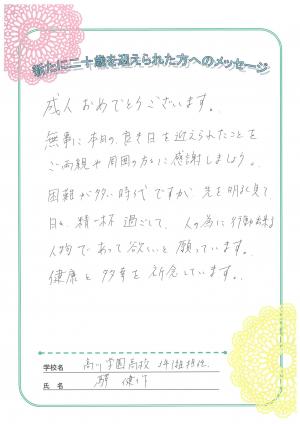 新たに二十歳を迎えられた方へのメッセージ
成人おめでとうございます。
無事に本日の良き日を迎えられたことを
ご両親や周囲の方々に感謝しましょう。
困難が多い時代ですが、先を明るく見て
日々、精一杯過ごして、人の為に行動出来る
人物であって欲しいと願っています。
健康と多幸を祈念しています。
学校名 高川学園高校 3年1組担任
氏名 健作